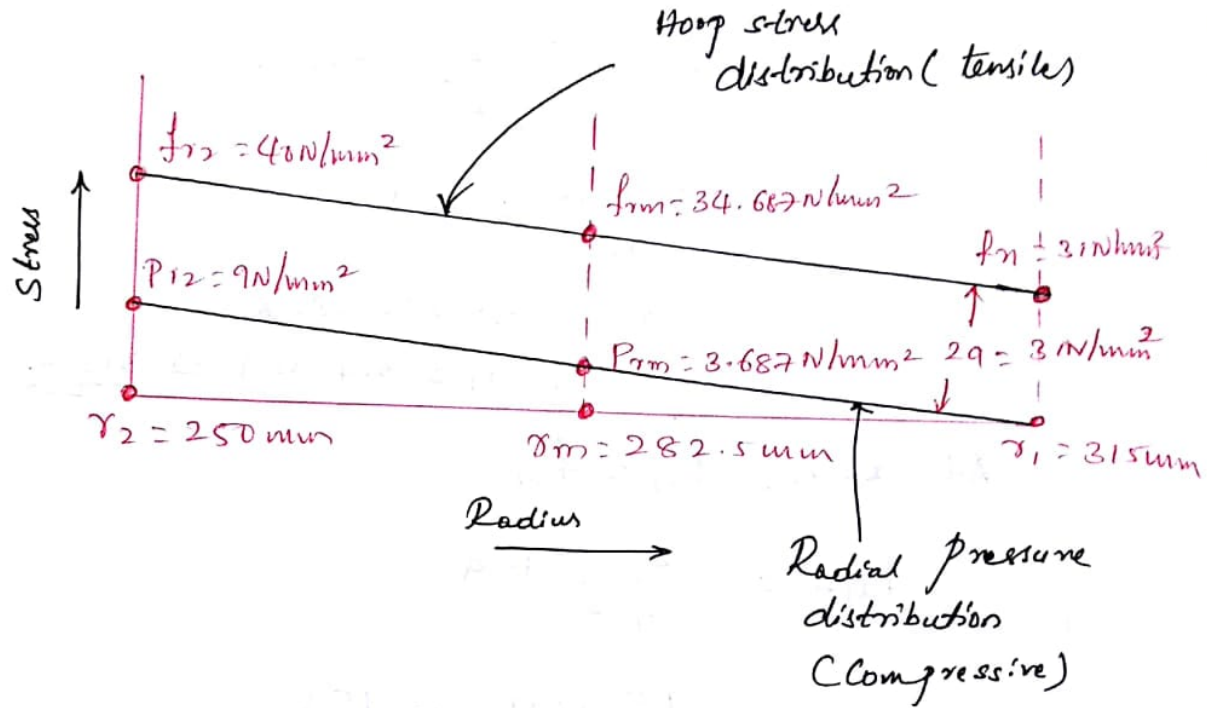 Hoop stress
distribution ( tensiles)
fr2 = 40N/mm²
frm = 34.687N/mm²
fr1 = 31N/mm²
Stress
Pr2 = 9N/mm²
Prm = 3.687N/mm²
2a = 31N/mm²
r2 = 250mm
rm = 282.5mm
r1 = 315mm
Radius
Radial pressure
distribution
(Compressive)